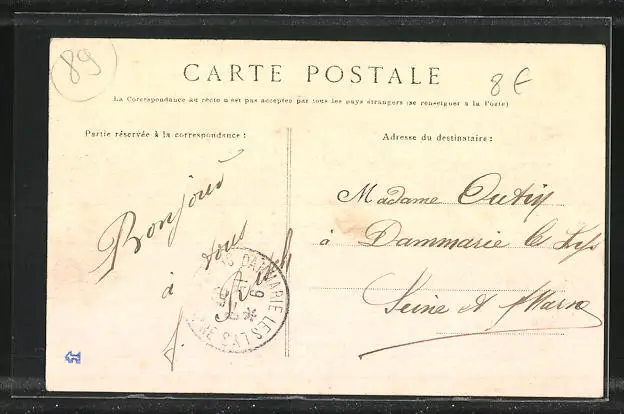 89
CARTE POSTALE
8€
La Correspondance au recto n'est pas acceptée par tous les pays étrangers (se renseigner à la Poste)
Partie réservée à la correspondance :
Adresse du destinataire :
Bonjour
à vous
Madame
à Dammarie les Lys
Seine et Marne
DAMMARIE LES LYS